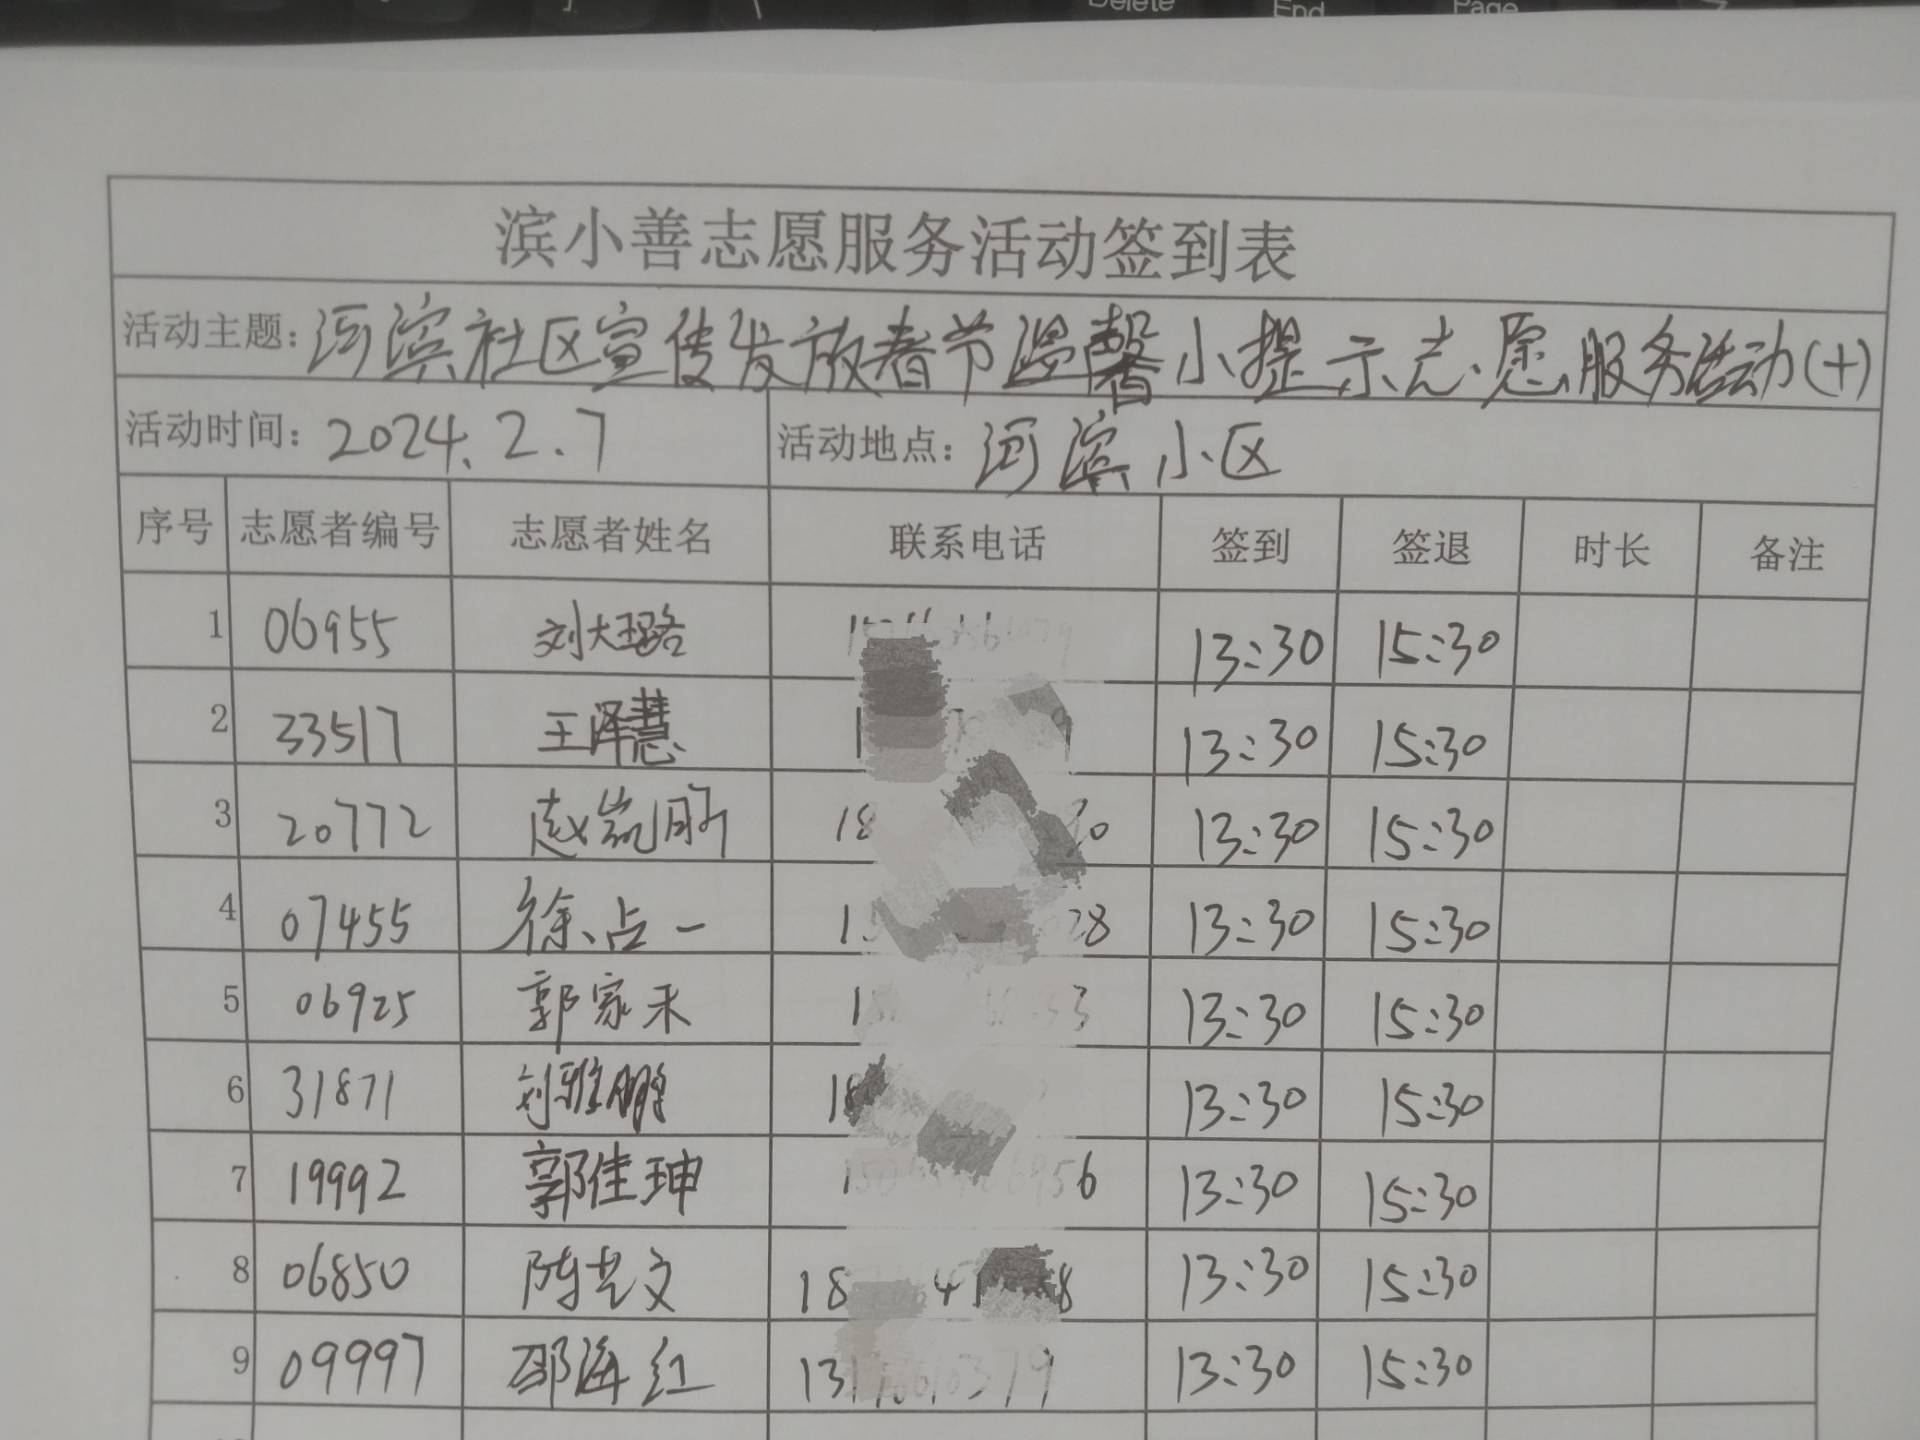 Delete End Page
滨小善志愿服务活动签到表
活动主题：河滨社区宣传发放春节温馨小提示志愿服务活动(十)
活动时间：2024.2.7 活动地点：河滨小区
序号 志愿者编号 志愿者姓名 联系电话 签到 签退 时长 备注
1 06955 刘大璐 13:30 15:30
2 33517 王泽慧 13:30 15:30
3 20772 赵岚 18 13:30 15:30
4 07455 徐占一 1 28 13:30 15:30
5 06925 郭家禾 1 13:30 15:30
6 31871 刘雅鹏 18 13:30 15:30
7 19992 郭佳珅 1 6 13:30 15:30
8 06850 陈艺文 18 4 8 13:30 15:30
9 09997 邵海红 13 379 13:30 15:30